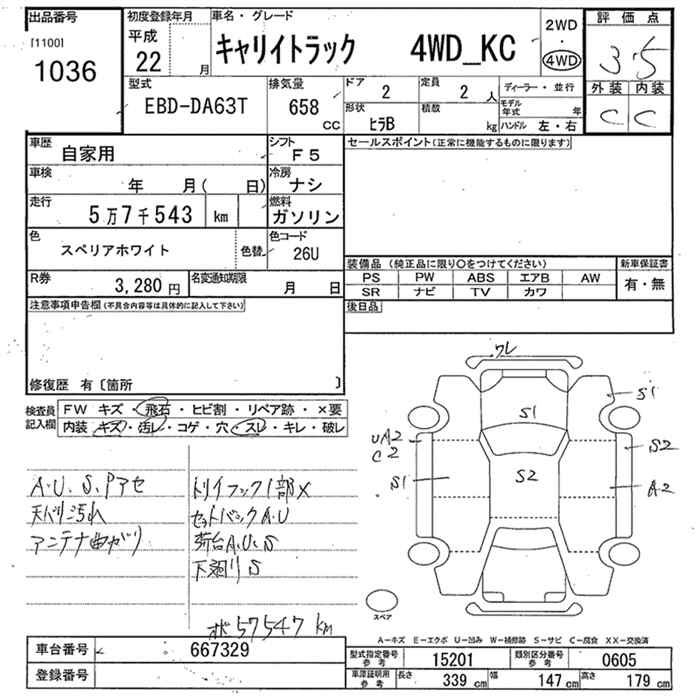 出品番号
[1100]
1036
初度登録年月
平成
22 月
車名・グレード
キャリイトラック 4WD_KC
2WD
・
4WD
評価点
3.5
外装 内装
C C
型式
EBD-DA63T
排気量
658
CC
ドア
2
定員
2 人
形状
ヒラB
積数
kg
ディーラー・並行
モデル
年式 年
ハンドル 左・右
車歴
自家用
シフト
F5
車検
年 月( 日)
冷房
ナシ
走行
5万7千543 km
燃料
ガソリン
色
スペリアホワイト
色替
色コード
26U
R券
3,280円
名変通知期限
月 日
セールスポイント(正常に機能するものに限ります)
装備品 (純正品に限り○をつけてください)
新車保証書
PS PW ABS エアB AW
SR ナビ TV カワ
有・無
注意事項申告欄(不具合内容等は具体的に記入して下さい)
後日品
修復歴 有〔箇所 〕
検査員
記入欄
FW キズ・飛石・ヒビ割・リペア跡・×要
内装・キズ・汚レ・コゲ・穴・スレ・キレ・破レ
A・U、S、Pアセ
天バリ汚れ
アンテナ曲がり
トリイフック1部×
セットバックA・U
荷台A、U、S
下廻りS
オド57547km
ワレ
S1
S1
UA2
C2
S2
S1
S2
A2
スペア
A-キズ E-エクボ U-凹み W-補修跡 S-サビ C-腐食 XX-交換済
車台番号 667329
登録番号
型式指定番号
参考
15201
類別区分番号
参考
0605
車庫証明用
参考
長さ
339 cm
幅
147 cm
高さ
179 cm